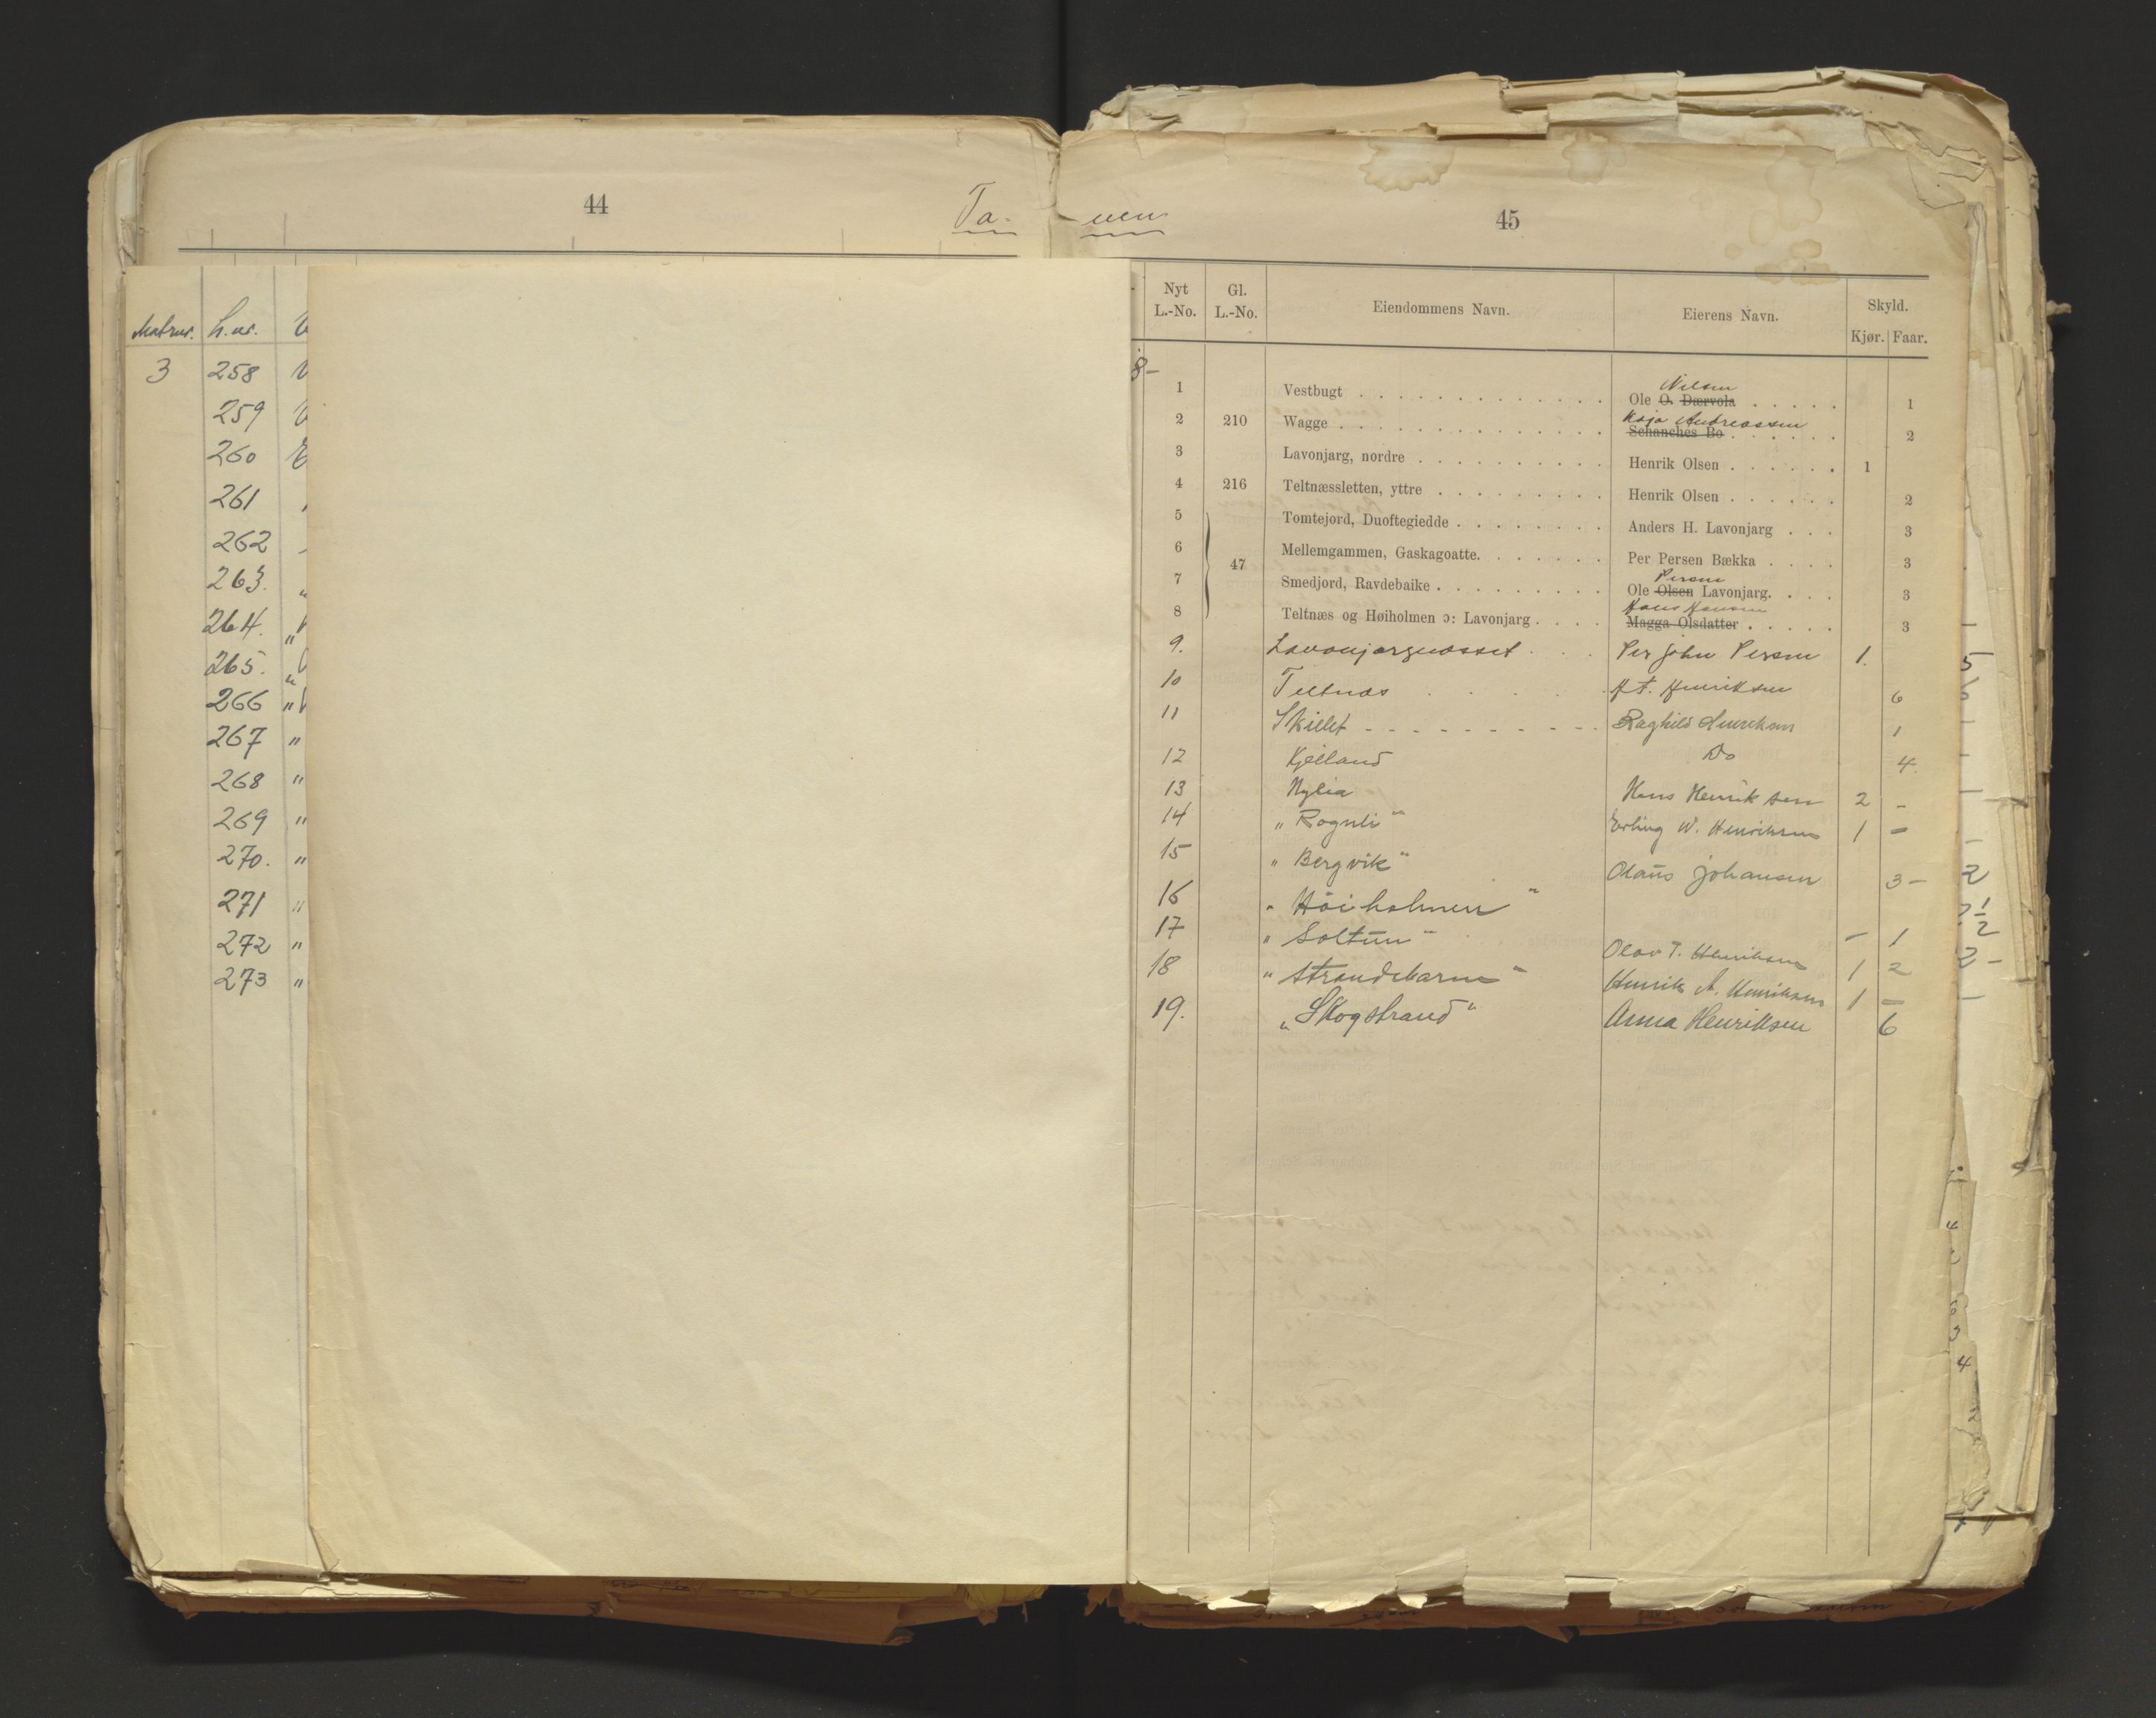 44
Ta- nen
45
Matrnr. L.nr.
3 258
259
260
261
262
263.
264. "
265. "
266 "
267 "
268 "
269 "
270. "
271 "
272 "
273 "
Nyt L.-No. Gl. L.-No. Eiendommens Navn. Eierens Navn. Skyld.
Kjør. Faar.
8-
Nilsen
1 Vestbugt . . . . . . . . . . . . . Ole O. Dærvola . . . . . 1
Kaja Andreassen
2 210 Wagge . . . . . . . . . . . . . . Schanches Bo . . . . . . 2
3 Lavonjarg, nordre . . . . . . . . . . Henrik Olsen . . . . . . 1
4 216 Teltnæssletten, yttre . . . . . . . . . Henrik Olsen . . . . . . 2
5 Tomtejord, Duoftegiedde . . . . . . . . Anders H. Lavonjarg . . . 3
6 Mellemgammen, Gaskagoatte. . . . . . . Per Persen Bækka . . . . 3
47
Persen
7 Smedjord, Ravdebaike . . . . . . . . . Ole Olsen Lavonjarg. . . . 3
Hans Hansen
8 Teltnæs og Høiholmen ɔ: Lavonjarg . . . . Magga Olsdatter . . . . . 3
9. Lavonjargnæsset . . . Per John Persen 1.
10 Teltnæs . . . . . H. A. Henriksen 6
11 Skillet - - - - - - - - - - Raghild Henriksen 1
12 Kjelland Do 4
13 Nylia Hans Henriksen 2 -
14 " Rognli " Erling W. Henriksen 1 -
15 " Bergvik " Olaüs Johansen 3 -
16 " Höiholmen "
17 " Soltün " - 1
Olav T. Henriksen
18 " Strandebarm " 1 2
Henrik A. Henriksen 1 -
19. " Skogstrand " Anna Henriksen 6